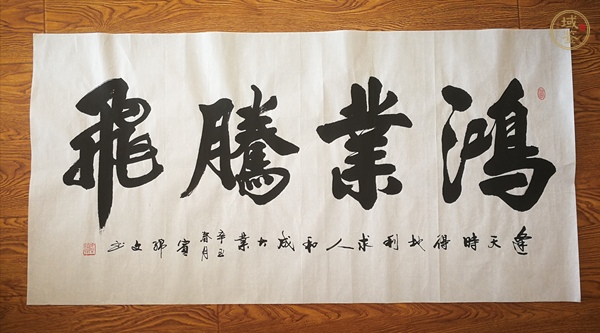 鸿業騰飛
逢天時得地利求人和成大業
辛丑
春月